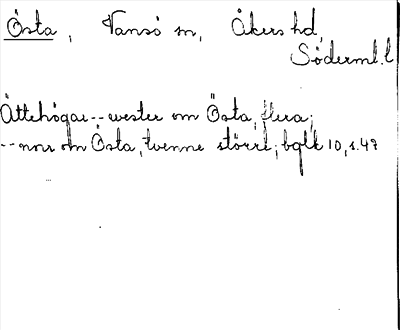 Östa, Vansö sn, Åkers hd,
Söderml. l
Ättehögar -- wester om Östa, flera;
-- norr om Östa, twenne större; bglk 10, s. 47